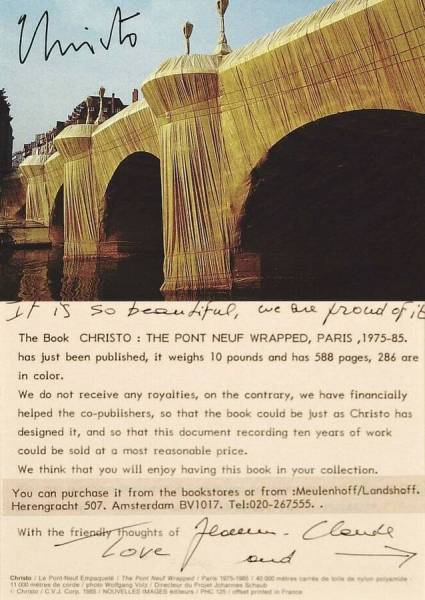 Christo
It is so beautiful, we are proud of it
The Book CHRISTO : THE PONT NEUF WRAPPED, PARIS ,1975-85.
has just been published, it weighs 10 pounds and has 588 pages, 286 are
in color.
We do not receive any royalties, on the contrary, we have financially
helped the co-publishers, so that the book could be just as Christo has
designed it, and so that this document recording ten years of work
could be sold at a most reasonable price.
We think that you will enjoy having this book in your collection.
You can purchase it from the bookstores or from :Meulenhoff/Landshoff.
Herengracht 507. Amsterdam BV1017. Tel:020-267555. .
With the friendly thoughts of Jeanne-Claude
Love and →
Christo / Le Pont-Neuf Empaqueté / The Pont Neuf Wrapped / Paris 1975-1985 / 40 000 mètres carrés de toile de nylon polyamide
11 000 mètres de corde / photo Wolfgang Volz / Directeur du Projet Johannes Schaub
© Christo / C.V.J. Corp. 1985 / NOUVELLES IMAGES éditeurs / PHC 125 / offset printed in France